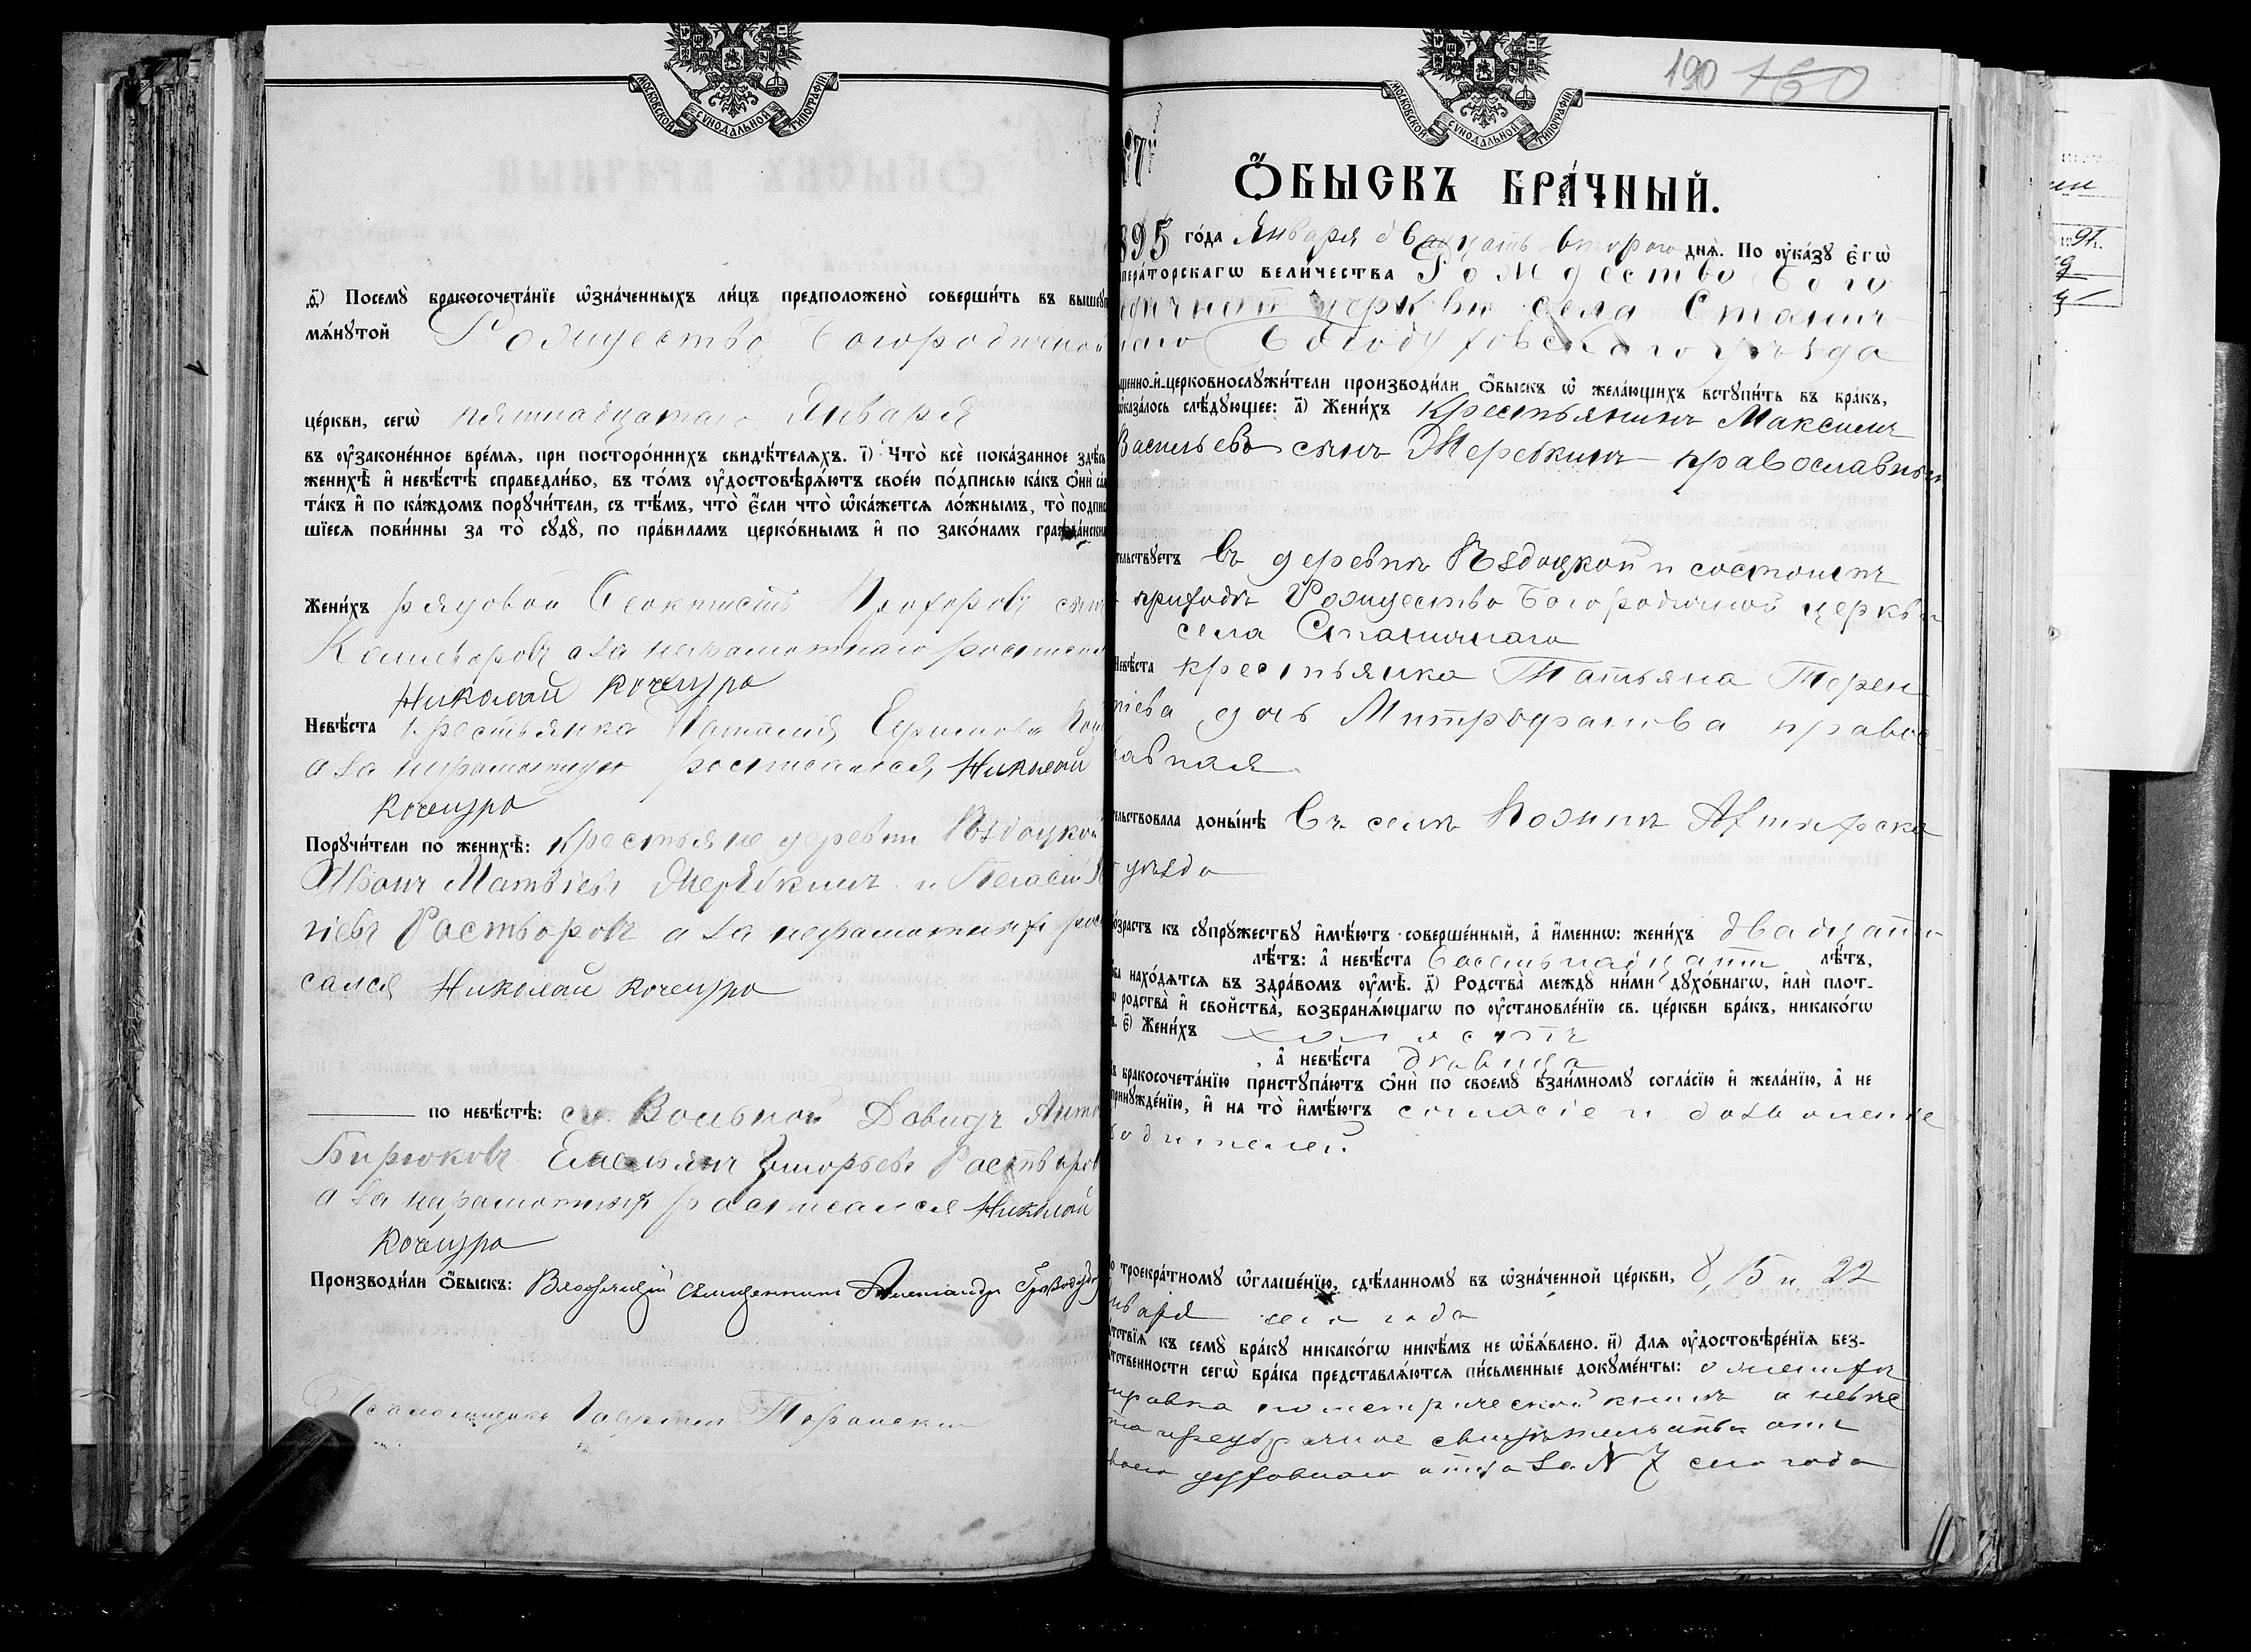 МОСКОВСКОЙ СѴНОДАЛЬНОЙ ТИПОГРАФІИ.
ѳ҃) Посемꙋ̀ бракосочета́нїе ѡ҆зна́ченныхъ ли́цъ предположено̀ соверши́ть въ вышеꙋп
мѧ́нꙋтой Рождество Богородичной
це́ркви, сегѡ̀ пятнадцатаго Января
въ ᲂу҆зако́ненное вре́мѧ, при посторо́ннихъ свидѣ́телѧхъ. і҃) Что̀ всѐ пока́занное здѣсь
женихѣ̀ и҆ невѣ́стѣ справедли́во, въ то́мъ ᲂу҆достовѣрѧ́ютъ свое́ю по́дписью ка́къ ѻ҆нѝ са
та́къ и҆ по ка́ждомъ порꙋчи́тели, съ тѣ́мъ, что̀ є҆́сли что̀ ѡ҆ка́жется ло́жнымъ, то̀ подпис
шїеся пови́нны за то̀ сꙋдꙋ̀, по пра́виламъ церко́внымъ и҆ по зако́намъ гражда́нски
Жени́хъ рядовой Феоктистъ Прохоровъ сынъ
а за неграмотнаго росписал
Николай Кочемро
Невѣ́ста крестьянка Наталія Ефимова
а за неграмотную росписался Николай
Кочемро
Порꙋчи́тели по женихѣ̀: крестьяне деревни
Иванъ Матвіевъ Жеребкинъ и
піевъ Растворовъ а за неграмотныхъ рос
сался Николай Кочемро
по невѣ́стѣ: сл. Вольной Давидъ Анто
Бирюковъ Емельянъ Григорьевъ Растворов
а за неграмотныхъ росписался Николай
Кочемро
Производи́ли ѻ҆́быскъ: Священникъ Александръ
Псаломщикъ Гавріилъ
МОСКОВСКОЙ СѴНОДАЛЬНОЙ ТИПОГРАФІИ.
190 160
Ѻ҆́БЫСКЪ БРА́ЧНЫЙ.
895 го́да Января двадцать второго днѧ̀. По ᲂу҆ка́зꙋ є҆гѡ̀
пера́торскагѡ вели́чества Рождество Бого
родичной церкви села Станич
наго Богодуховскаго уѣзда
щенно-и҆-церковнослꙋжи́тели производи́ли ѻ҆́быскъ ѡ҆ жела́ющихъ встꙋпи́ть въ бра́къ,
ѡ҆каза́лось слѣ́дꙋющее: а҃) Жени́хъ крестьянинъ Максимъ
Васильевъ сынъ Жеребкинъ православный
тельствꙋетъ въ деревнѣ и состоитъ
приходѣ Рождество Богородичной церкви
села Станичнаго
Невѣ́ста крестьянка Татьяна Терен
тіева дочь Митрофанова правос
лавная
тельствовала доны́нѣ въ селѣ Ахтырска
уѣзда
озрастъ къ сꙋпрꙋ́жествꙋ и҆мѣ́ютъ соверше́нный, а҆ и҆́меннѡ: жени́хъ двадцати
лѣ́тъ: а҆ невѣ́ста восемьнадцати лѣ́тъ,
ба нахо́дятся въ здра́вомъ ᲂу҆мѣ̀. д҃) Родства̀ междꙋ̀ ни́ми дꙋхо́внагѡ, и҆лѝ плот-
родства̀ и҆ сво́йства̀, возбранѧ́ющагѡ по ᲂу҆становле́нїю св. це́ркви бра́къ, никако́гѡ
є҃) Жени́хъ холостъ
, а҆ невѣ́ста дѣвица
бракосочета́нїю пристꙋпа́ютъ ѻ҆нѝ по своемꙋ̀ взаи́мномꙋ согла́сїю и҆ жела́нїю, а҆ не
принꙋжде́нїю, и҆ на то̀ и҆мѣ́ютъ согласіе и дозволеніе
родителей.
троекра́тномꙋ ѡ҆глаше́нїю, сдѣ́ланномꙋ въ ѡ҆зна́ченной це́ркви, 8, 15 и 22
нваря сего года
ѧ́тствїя къ семꙋ̀ бра́кꙋ никако́гѡ никѣ́мъ не ѡ҆б̾ѧ́влено. и҃) Для ᲂу҆достовѣре́нїя без-
ѧ́тственности сегѡ̀ бра́ка представлѧ́ютсѧ пи́сьменные докꙋме́нты: о женихѣ
справка по метрической книгѣ а невѣс
та предбрачное свидѣтельство отъ
своего духовнаго отца за № 7 сего года